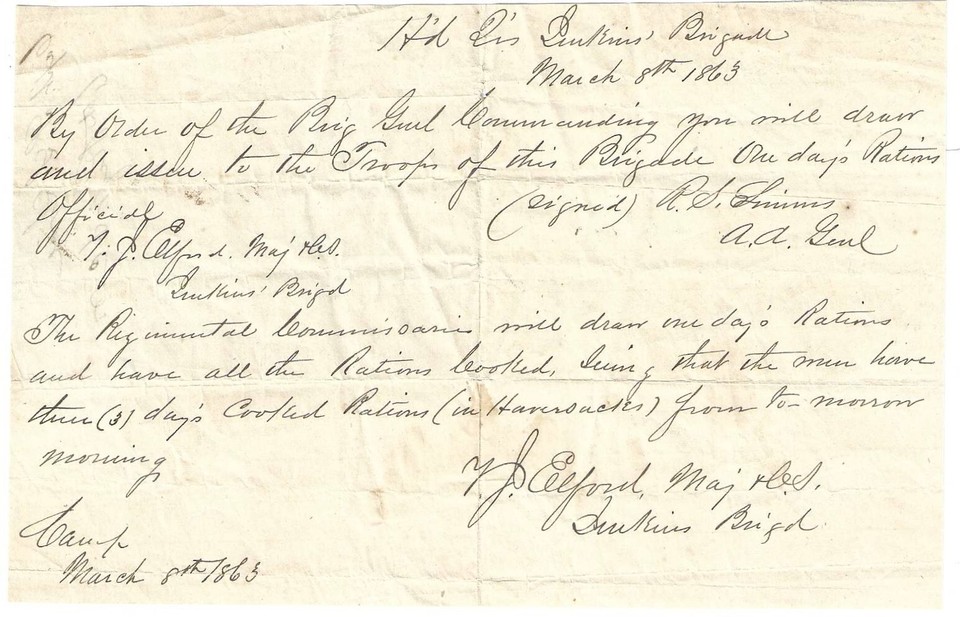 H'd Qr's Jenkins' Brigade
March 8th 1863
By Order of the Brig Genl Commanding you will draw
and issue to the Troops of this Brigade One day's Rations
(signed) R. S. Simms
A. A. Genl
Official
T. J. Elford. Maj & C.S.
Jenkins' Brigd
The Regimental Commissaries will draw one day's Rations
and have all the Rations Cooked, Seeing that the men have
three (3) day's Cooked Rations (in Haversacks) from to-morrow
morning
T. J. Elford, Maj & C.S.
Jenkins Brigd
Camp
March 8th 1863